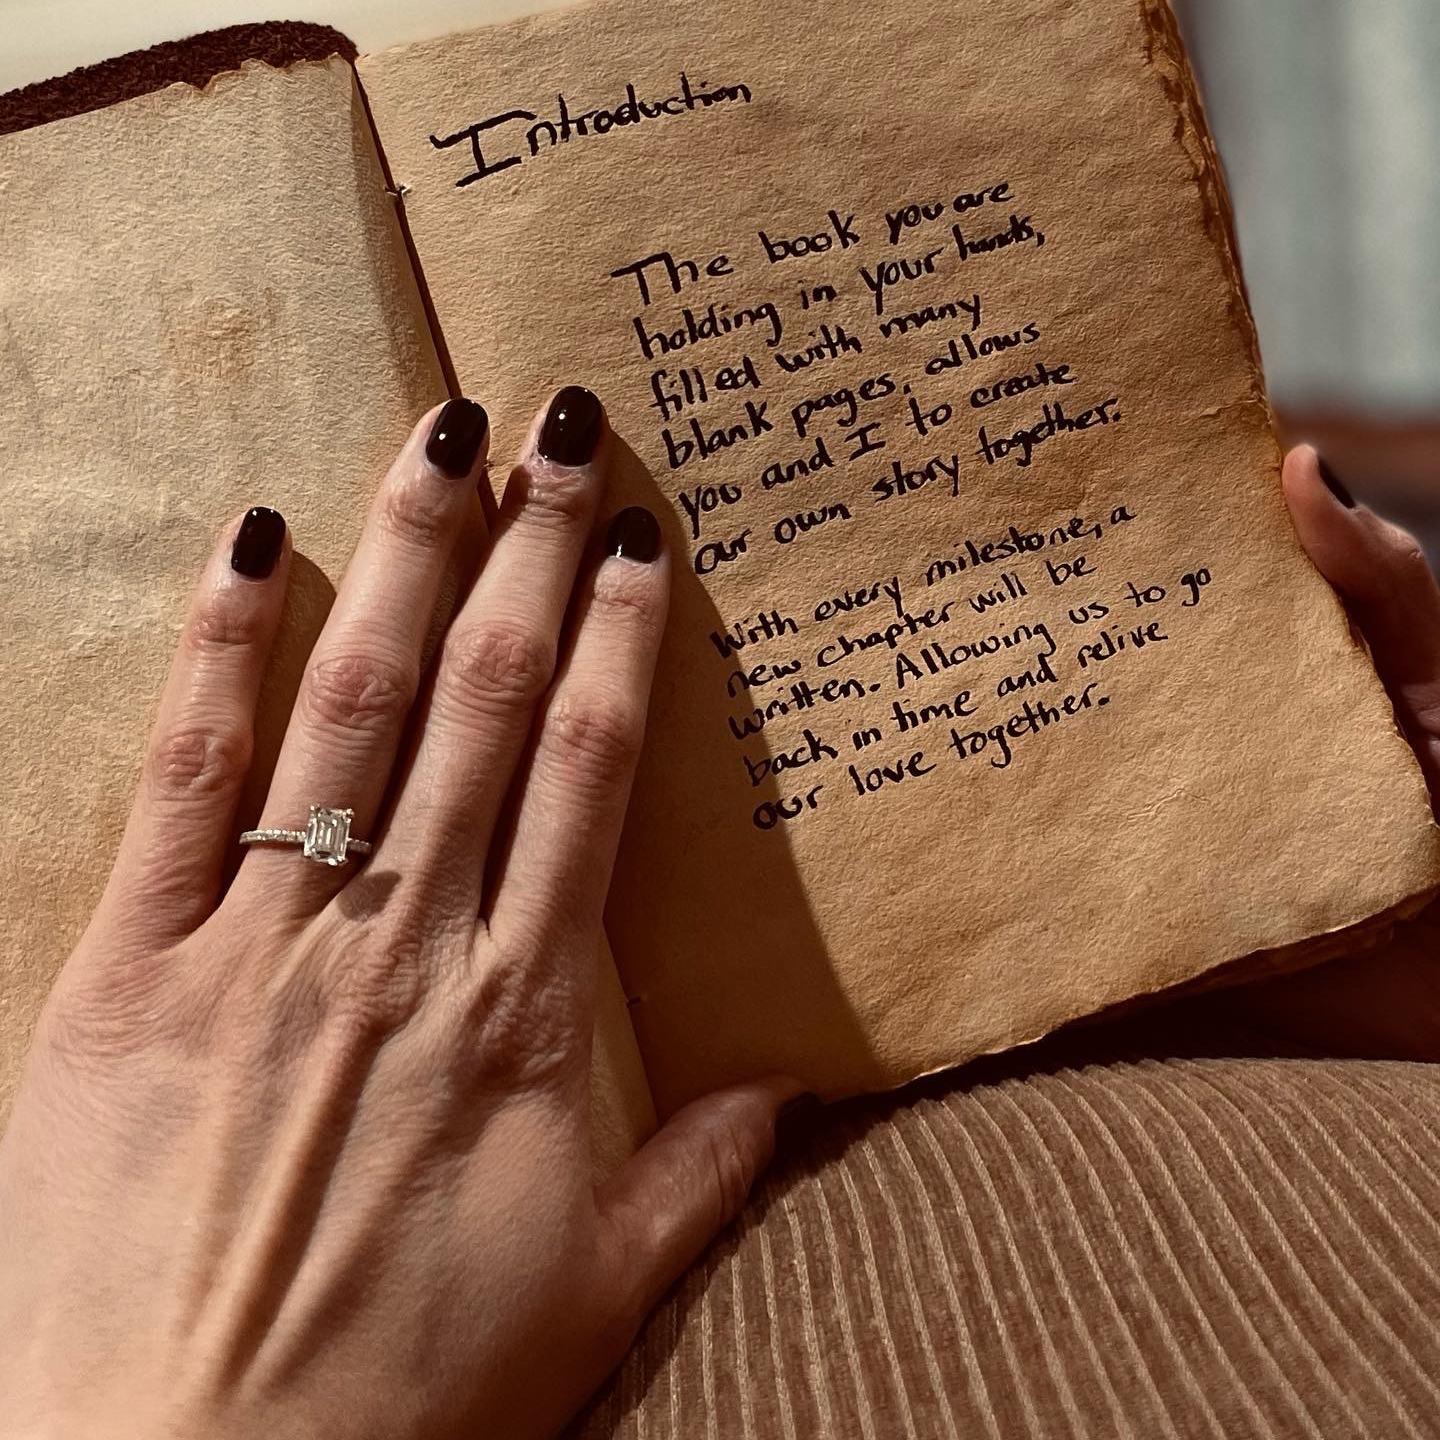 Introduction
The book you are
holding in your hands,
filled with many
blank pages, allows
you and I to create
our own story together.
With every milestone, a
new chapter will be
written. Allowing us to go
back in time and relive
our love together.